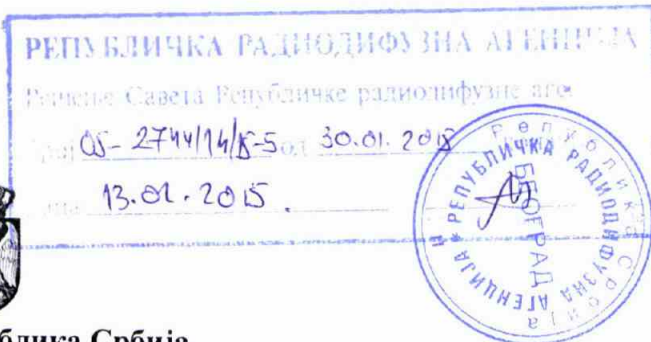 РЕПУБЛИЧКА РАДИОДИФУЗНА АГЕНЦИЈА
Решење Савета Републичке радиодифузне аге
05-2744/14/15-5 од 30.01.2015
13.02.2015.
Република Србија
РЕПУБЛИЧКА РАДИОДИФУЗНА АГЕНЦИЈА
БЕОГРАД
блика Србија